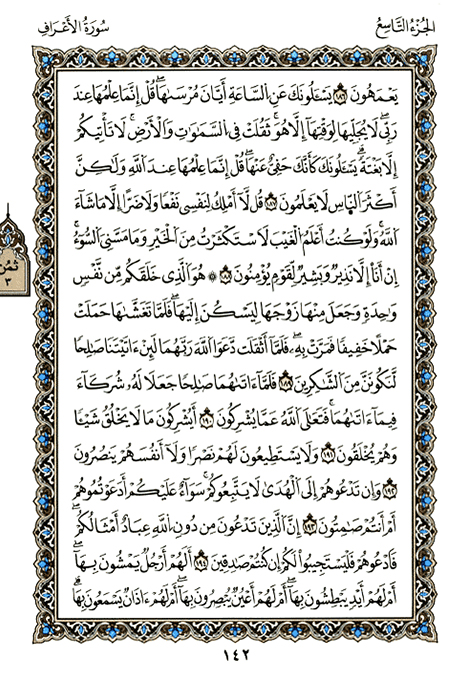 الجُزْءُ التَّاسِعُ
سُورَةُ الأَعْرَافِ
يَعْمَهُونَ ١٨٦ يَسْـَٔلُونَكَ عَنِ السَّاعَةِ أَيَّانَ مُرْسَىٰهَا قُلْ إِنَّمَا عِلْمُهَا عِندَ
رَبِّي لَا يُجَلِّيهَا لِوَقْتِهَا إِلَّا هُوَ ثَقُلَتْ فِي السَّمَٰوَٰتِ وَالْأَرْضِ لَا تَأْتِيكُمْ
إِلَّا بَغْتَةً يَسْـَٔلُونَكَ كَأَنَّكَ حَفِيٌّ عَنْهَا قُلْ إِنَّمَا عِلْمُهَا عِندَ اللَّهِ وَلَٰكِنَّ
أَكْثَرَ النَّاسِ لَا يَعْلَمُونَ ١٨٧ قُل لَّا أَمْلِكُ لِنَفْسِي نَفْعًا وَلَا ضَرًّا إِلَّا مَا شَاءَ
اللَّهُ وَلَوْ كُنتُ أَعْلَمُ الْغَيْبَ لَاسْتَكْثَرْتُ مِنَ الْخَيْرِ وَمَا مَسَّنِيَ السُّوءُ
إِنْ أَنَا إِلَّا نَذِيرٌ وَبَشِيرٌ لِّقَوْمٍ يُؤْمِنُونَ ١٨٨ ۞ هُوَ الَّذِي خَلَقَكُم مِّن نَّفْسٍ
وَٰحِدَةٍ وَجَعَلَ مِنْهَا زَوْجَهَا لِيَسْكُنَ إِلَيْهَا فَلَمَّا تَغَشَّىٰهَا حَمَلَتْ
حَمْلًا خَفِيفًا فَمَرَّتْ بِهِ فَلَمَّا أَثْقَلَت دَّعَوَا اللَّهَ رَبَّهُمَا لَئِنْ ءَاتَيْتَنَا صَٰلِحًا
لَّنَكُونَنَّ مِنَ الشَّٰكِرِينَ ١٨٩ فَلَمَّا ءَاتَىٰهُمَا صَٰلِحًا جَعَلَا لَهُ شُرَكَاءَ
فِيمَا ءَاتَىٰهُمَا فَتَعَٰلَى اللَّهُ عَمَّا يُشْرِكُونَ ١٩٠ أَيُشْرِكُونَ مَا لَا يَخْلُقُ شَيْـًٔا
وَهُمْ يُخْلَقُونَ ١٩١ وَلَا يَسْتَطِيعُونَ لَهُمْ نَصْرًا وَلَا أَنفُسَهُمْ يَنصُرُونَ
١٩٢ وَإِن تَدْعُوهُمْ إِلَى الْهُدَىٰ لَا يَتَّبِعُوكُمْ سَوَاءٌ عَلَيْكُمْ أَدَعَوْتُمُوهُمْ
أَمْ أَنتُمْ صَٰمِتُونَ ١٩٣ إِنَّ الَّذِينَ تَدْعُونَ مِن دُونِ اللَّهِ عِبَادٌ أَمْثَالُكُمْ
فَادْعُوهُمْ فَلْيَسْتَجِيبُوا لَكُمْ إِن كُنتُمْ صَٰدِقِينَ ١٩٤ أَلَهُمْ أَرْجُلٌ يَمْشُونَ بِهَا
أَمْ لَهُمْ أَيْدٍ يَبْطِشُونَ بِهَا أَمْ لَهُمْ أَعْيُنٌ يُبْصِرُونَ بِهَا أَمْ لَهُمْ ءَاذَانٌ يَسْمَعُونَ بِهَا
ثمن
٣
١٤٢